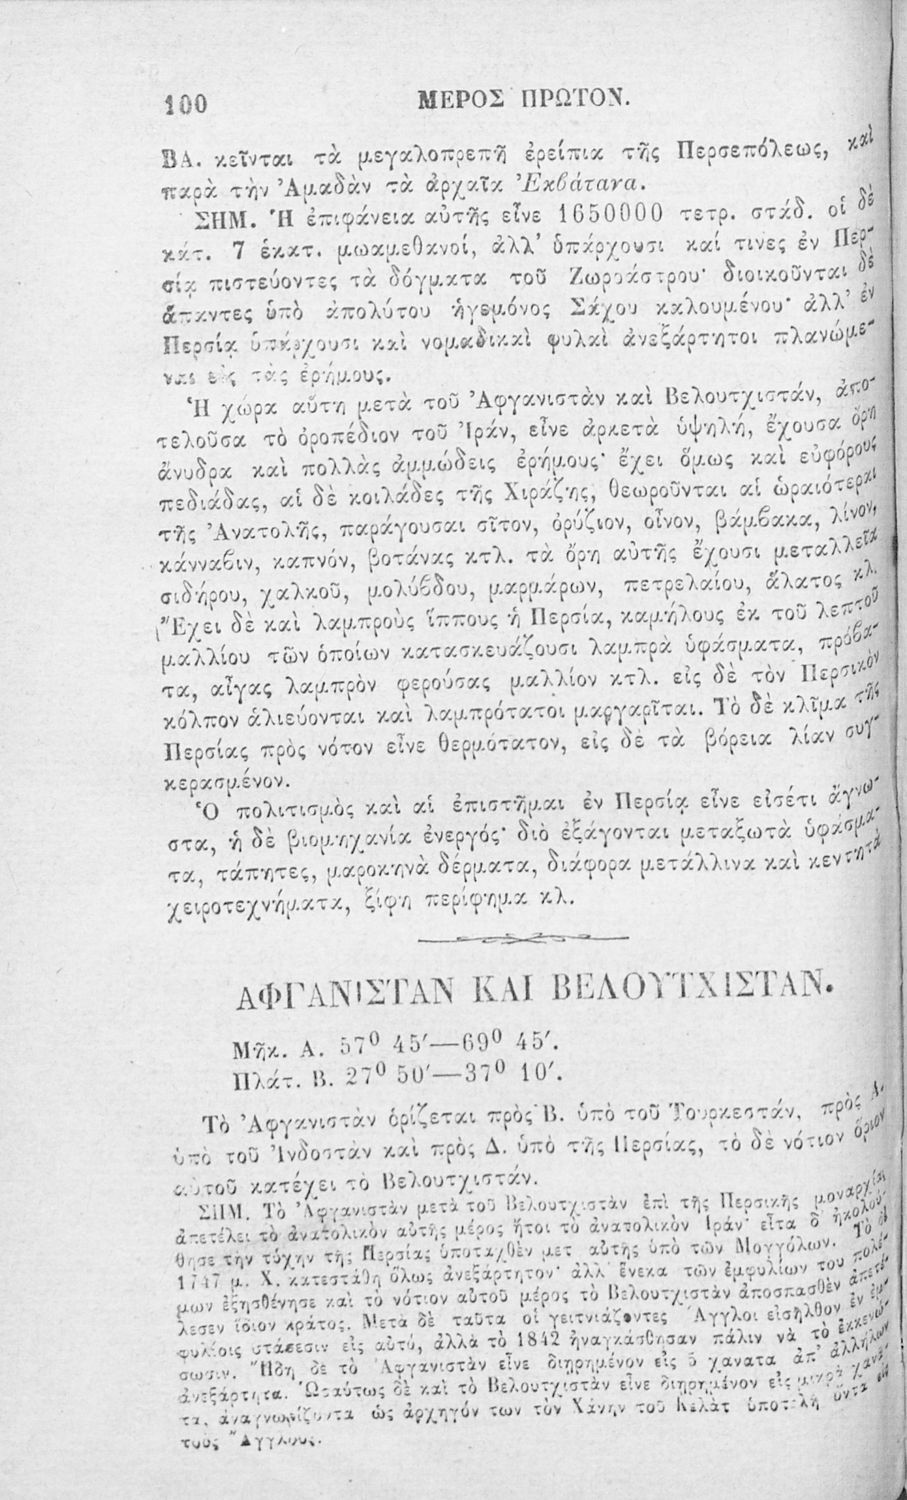 100 ΜΕΡΟΣ ΠΡΩΤΟΝ.
ΒΑ. κεῖνται τὰ μεγαλοπρεπῆ ἐρείπια τῆς Περσεπόλεως, καὶ
παρὰ τὴν Ἀμαδὰν τὰ ἀρχαῖα Ἐκβάτανα.
ΣΗΜ. Ἡ ἐπιφάνεια αὐτῆς εἶνε 1650000 τετρ. στάδ. οἱ δὲ
κάτ. 7 ἑκατ. μωαμεθανοί, ἀλλ' ὑπάρχουσι καί τινες ἐν Περ-
σίᾳ πιστεύοντες τὰ δόγματα τοῦ Ζωροάστρου· διοικοῦνται δὲ
ἅπαντες ὑπὸ ἀπολύτου ἡγεμόνος Σάχου καλουμένου· ἀλλ' ἐν
Περσίᾳ ὑπάρχουσι καὶ νομαδικαὶ φυλαὶ ἀνεξάρτητοι πλανώμε-
ναι εἰς τὰς ἐρήμους.
Ἡ χώρα αὕτη μετὰ τοῦ Ἀφγανιστὰν καὶ Βελουτχιστάν, ἀπο-
τελοῦσα τὸ ὀροπέδιον τοῦ Ἰράν, εἶνε ἀρκετὰ ὑψηλή, ἔχουσα ὄρη
ἄνυδρα καὶ πολλὰς ἀμμώδεις ἐρήμους· ἔχει ὅμως καὶ εὐφόρους
πεδιάδας, αἱ δὲ κοιλάδες τῆς Χιράζης, θεωροῦνται αἱ ὡραιότεραι
τῆς Ἀνατολῆς, παράγουσαι σῖτον, ὀρύζιον, οἶνον, βάμβακα, λίνον,
κάνναβιν, καπνόν, βοτάνας κτλ. τὰ ὄρη αὐτῆς ἔχουσι μεταλλεῖα
σιδήρου, χαλκοῦ, μολύβδου, μαρμάρων, πετρελαίου, ἅλατος κλ.
Ἔχει δὲ καὶ λαμπροὺς ἵππους ἡ Περσία, καμήλους ἐκ τοῦ λεπτοῦ
μαλλίου τῶν ὁποίων κατασκευάζουσι λαμπρὰ ὑφάσματα, πρόβα-
τα, αἶγας λαμπρὸν φερούσας μαλλίον κτλ. εἰς δὲ τὸν Περσικὸν
κόλπον ἁλιεύονται καὶ λαμπρότατοι μαργαρῖται. Τὸ δὲ κλῖμα τῆς
Περσίας πρὸς νότον εἶνε θερμότατον, εἰς δὲ τὰ βόρεια λίαν συγ-
κερασμένον.
Ὁ πολιτισμὸς καὶ αἱ ἐπιστῆμαι ἐν Περσίᾳ εἶνε εἰσέτι ἄγνω-
στα, ἡ δὲ βιομηχανία ἐνεργός· διὸ ἐξάγονται μεταξωτὰ ὑφάσμα-
τα, τάπητες, μαροκηνὰ δέρματα, διάφορα μετάλλινα καὶ κεντητὰ
χειροτεχνήματα, ξίφη περίφημα κλ.
ΑΦΓΑΝΙΣΤΑΝ ΚΑΙ ΒΕΛΟΥΤΧΙΣΤΑΝ.
Μῆκ. Α. 57° 45′—69° 45′.
Πλάτ. Β. 27° 50′—37° 10′.
Τὸ Ἀφγανιστὰν ὁρίζεται πρὸς Β. ὑπὸ τοῦ Τουρκεστάν, πρὸς Α.
ὑπὸ τοῦ Ἰνδοστὰν καὶ πρὸς Δ. ὑπὸ τῆς Περσίας, τὸ δὲ νότιον ὅριον
αὐτοῦ κατέχει τὸ Βελουτχιστάν.
ΣΗΜ. Τὸ Ἀφγανιστὰν μετὰ τοῦ Βελουτχιστὰν ἐπὶ τῆς Περσικῆς μοναρχίας
ἀπετέλει τὸ ἀνατολικὸν αὐτῆς μέρος ἤτοι τὸ ἀνατολικὸν Ἰράν· εἶτα δ' ἠκολού-
θησε τὴν τύχην τῆς Περσίας ὑποταχθὲν μετ' αὐτῆς ὑπὸ τῶν Μογγόλων. Τὸ δὲ
1747 μ. Χ. κατεστάθη ὅλως ἀνεξάρτητον· ἀλλ' ἕνεκα τῶν ἐμφυλίων του πολέ-
μων ἐξησθένησε καὶ τὸ νότιον αὐτοῦ μέρος τὸ Βελουτχιστὰν ἀποσπασθὲν ἀπετέ-
λεσεν ἴδιον κράτος. Μετὰ δὲ ταῦτα οἱ γειτνιάζοντες Ἄγγλοι εἰσῆλθον ἐν ἐμ-
φυλίοις στάσεσιν εἰς αὐτό, ἀλλὰ τὸ 1842 ἠναγκάσθησαν πάλιν νὰ τὸ ἐκκενώ-
σωσιν. Ἤδη δὲ τὸ Ἀφγανιστὰν εἶνε διῃρημένον εἰς 5 χανάτα ἀπ' ἀλλήλων
ἀνεξάρτητα. Ὡσαύτως δὲ καὶ τὸ Βελουτχιστὰν εἶνε διῃρημένον εἰς μικρὰ χανά-
τα, ἀναγνωρίζοντα ὡς ἀρχηγόν των τὸν Χάνην τοῦ Κελὰτ ὑποτελῆ ὄντα εἰς
τοὺς Ἄγγλους.